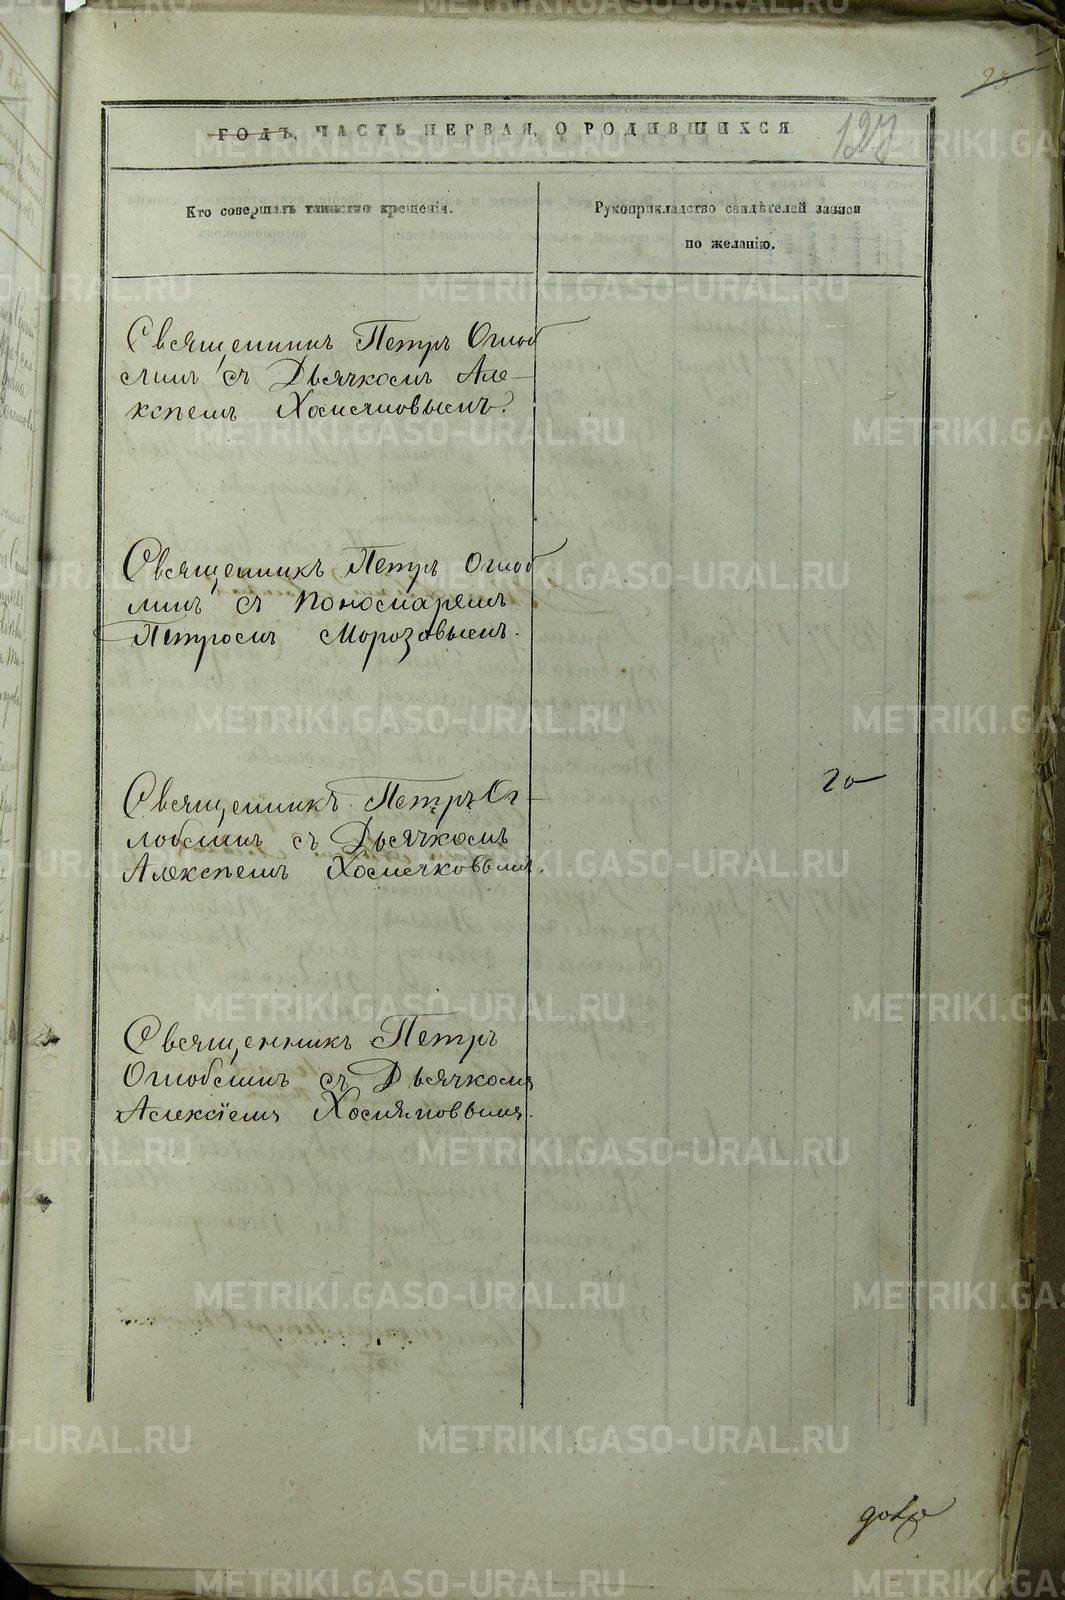 23
ГОДЪ, ЧАСТЬ ПЕРВАЯ, О РОДИВШИХСЯ
127
Кто совершалъ таинство крещенія.
Рукоприкладство свидѣтелей записи
по желанію.
Священникъ Петръ Оглоб
линъ съ Дьячкомъ Але-
ксѣемъ Хомяковымъ.
Священникъ Петръ Оглоб
линъ съ Пономаремъ
Петромъ Морозовымъ.
Священникъ Петръ Ог-
лоблинъ съ Дьячкомъ
Алексѣемъ Хомяковымъ.
20
Священникъ Петръ
Оглоблинъ съ Дьячкомъ
Алексіемъ Хомяковымъ.
METRIKI.GASO-URAL.RU